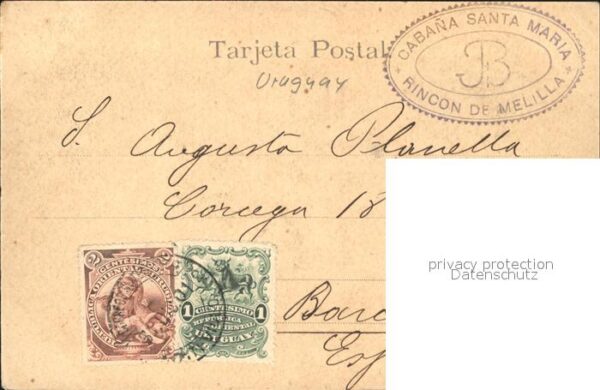 Tarjeta Postal
CABAÑA SANTA MARIA
JB
RINCON DE MELILLA
Uruguay
S. Augusto Planella
Corcega 18
privacy protection
Datenschutz
2 CENTESIMOS 2
REPUBLICA ORIENTAL DEL URUGUAY
1 CENTESIMO 1
REPUBLICA
ORIENTAL
URUGUAY
Barc
Esp